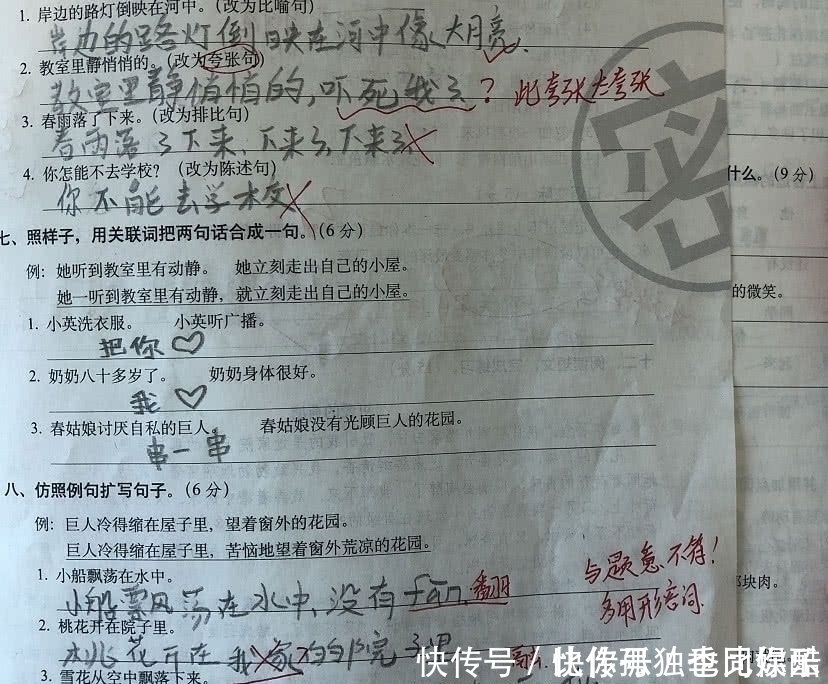 1. 岸边的路灯倒映在河中。(改为比喻句)
岸边的路灯倒映在河中像大月亮.
2. 教室里静悄悄的。(改为夸张句)
教室里静悄悄的,吓死我了? 此夸张太夸张
3. 春雨落了下来。(改为排比句)
春雨落了下来、下来了,下来了
4. 你怎能不去学校? (改为陈述句)
你不能去学校
密
什么。(9分)
七、照样子,用关联词把两句话合成一句。(6分)
例: 她听到教室里有动静。 她立刻走出自己的小屋。
她一听到教室里有动静,就立刻走出自己的小屋。
的微笑。
1. 小英洗衣服。 小英听广播。
把你♡
2. 奶奶八十多岁了。 奶奶身体很好。
我♡
3. 春姑娘讨厌自私的巨人。 春姑娘没有光顾巨人的花园。
串一串
八、仿照例句扩写句子。(6分)
例: 巨人冷得缩在屋子里,望着窗外的花园。
巨人冷得缩在屋子里,苦恼地望着窗外荒凉的花园。
与题意不符!
1. 小船飘荡在水中。
块肉。
小船票风荡在水中,没有fān. 翻
多用形容词
2. 桃花开在院子里。
桃花开在我家的院子里
3. 雪花从空中飘落下来。
快传号/